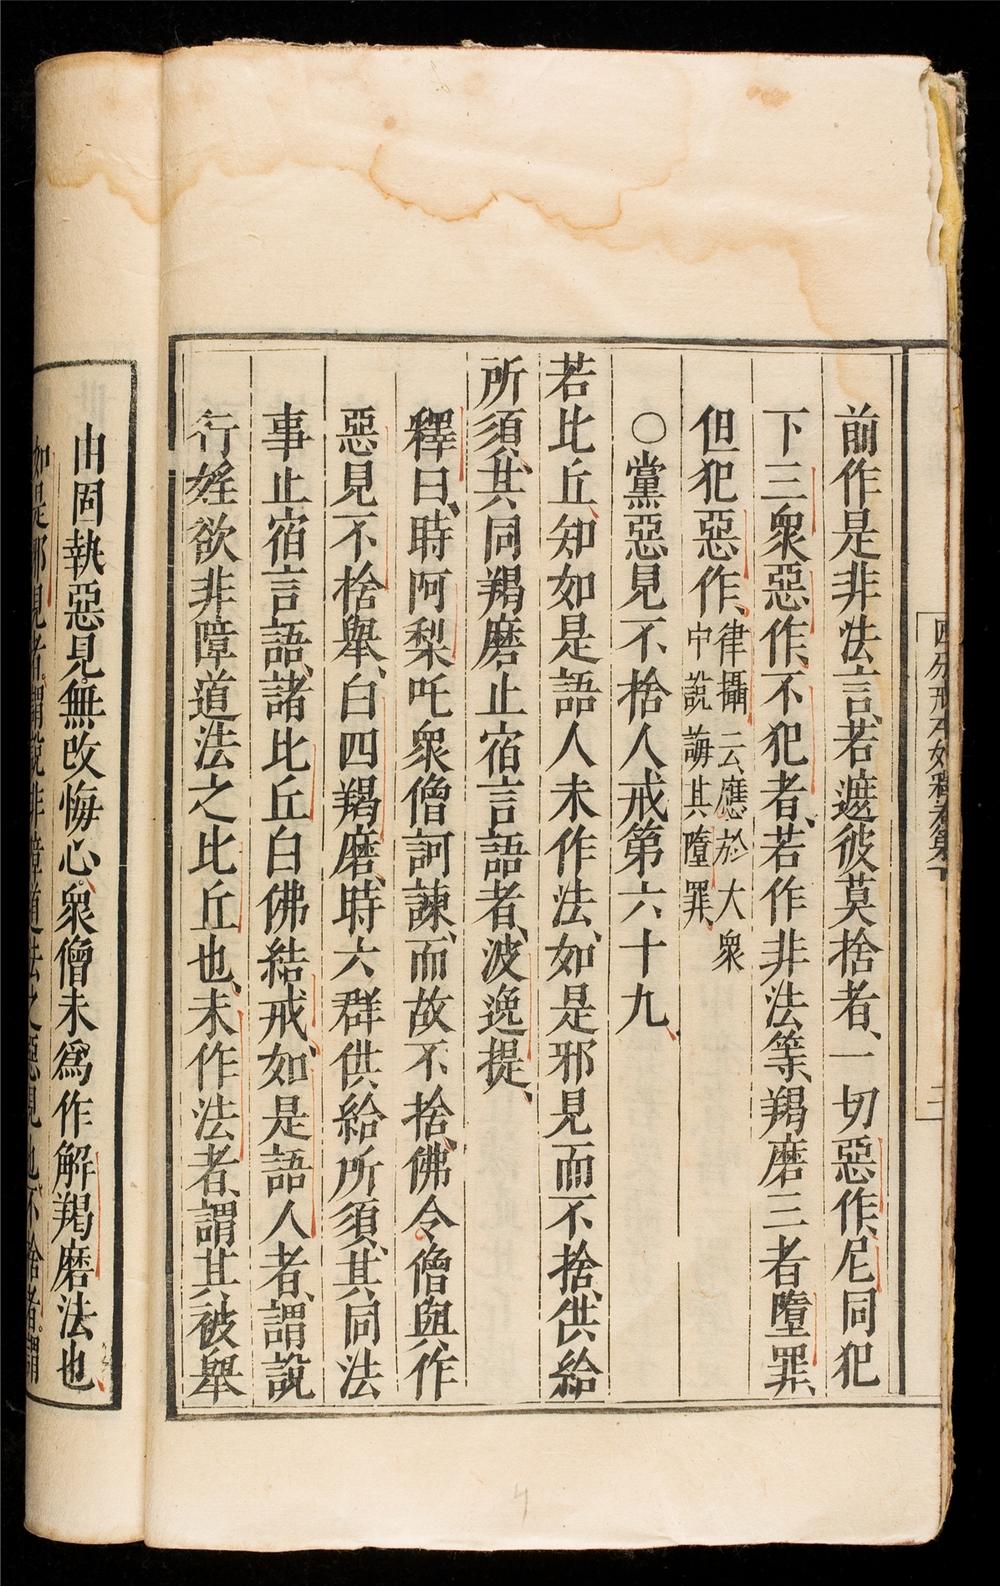 前作是非法言、若遮彼莫捨者、一切惡作、尼同犯
下三衆惡作、不犯者、若作非法等、羯磨三者墮罪、
但犯惡作、律攝云應於大衆
中說誨其墮罪、
○黨惡見不捨人戒第六十九、
若比丘、知如是語人未作法、如是邪見而不捨、供給
所須、其同羯磨止宿言語者、波逸提、
釋曰、時阿梨吒衆僧訶諫、而故不捨、佛令僧與作
惡見不捨舉、白四羯磨、時六群供給所須、其同法
事止宿言語、諸比丘白佛結戒、如是語人者、謂說
行婬欲非障道法之比丘也、未作法者、謂其被舉
由固執惡見、無改悔心、衆僧未爲作解羯磨法也、
如是邪見者。謂說非障道法之惡見也、不捨者。謂